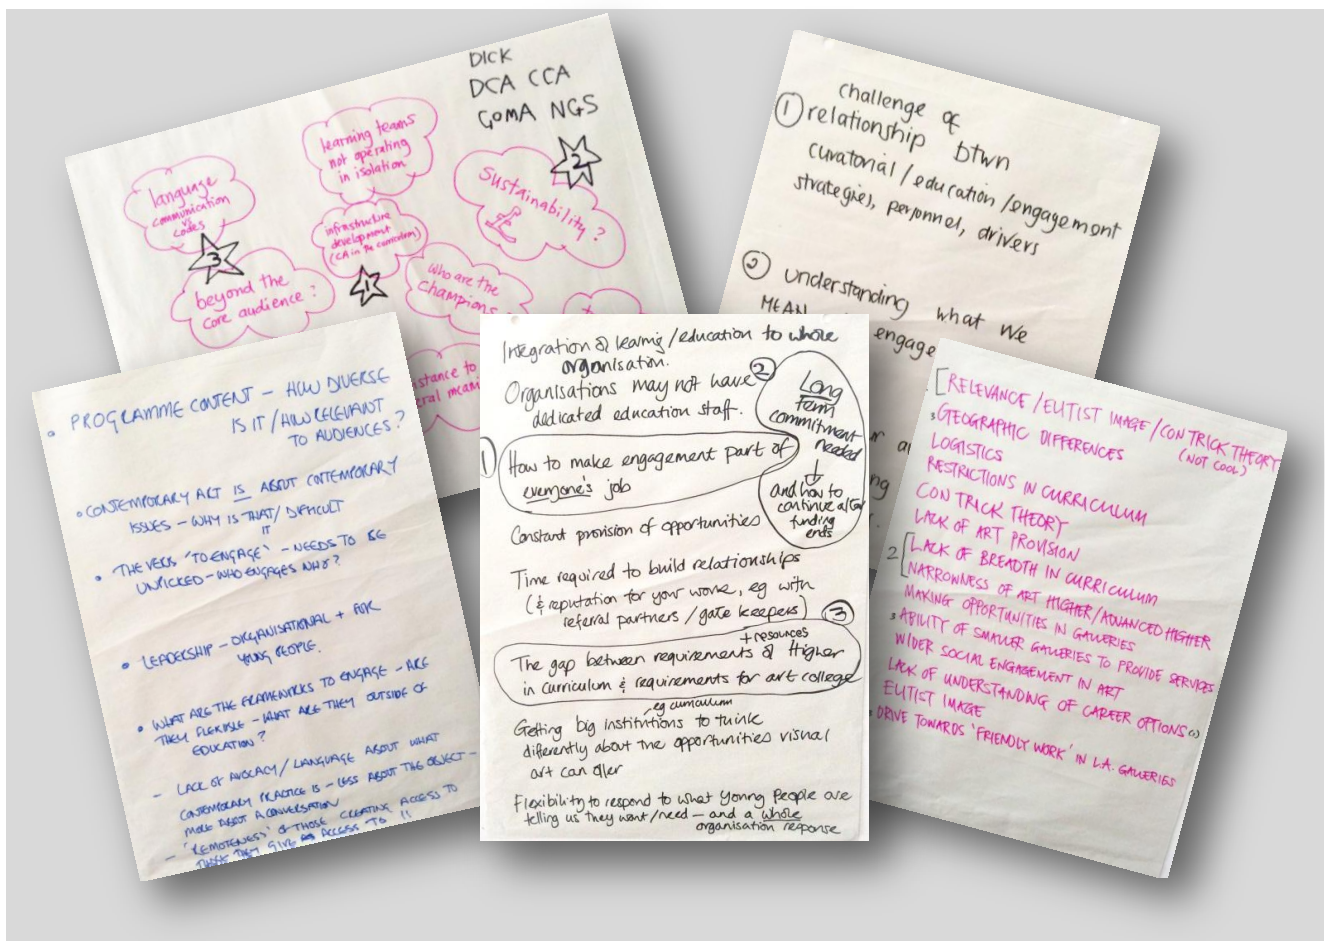 DICK
DCA CCA
GOMA NGS
learning teams
not operating
in isolation
2
language
communication
vs
codes
Sustainability?
infrastructure
development
(CA in the curriculum)
3
1
beyond the
core audience?
who are the
champions
stance to
challenge of
1 relationship btwn
curatorial/education/engagement
strategies, personnel, drivers
2 understanding what we
MEAN
engage
• PROGRAMME CONTENT – HOW DIVERSE
IS IT/HOW RELEVANT
TO AUDIENCES?
• CONTEMPORARY ART IS ABOUT CONTEMPORARY
ISSUES – WHY IS THAT/DIFFICULT
IT
• THE VERB 'TO ENGAGE' – NEEDS TO BE
UNPICKED – WHO ENGAGES WHO?
• LEADERSHIP – ORGANISATIONAL + FOR
YOUNG PEOPLE.
• WHAT ARE THE FRAMEWORKS TO ENGAGE – ARE
THEY FLEXIBLE – WHAT ARE THEY OUTSIDE OF
EDUCATION?
– LACK OF AVOCACY/LANGUAGE ABOUT WHAT
CONTEMPORARY PRACTICE IS – LESS ABOUT THE OBJECT –
MORE ABOUT A CONVERSATION
– 'REMOTENESS' OF THOSE CREATING ACCESS TO
THOSE THEY GIVE ACCESS TO !!
Integration of learning/education to whole
organisation.
Organisations may not have
dedicated education staff.
2
Long
term
commitment
needed
↓
and how to
continue after
funding
ends
1 How to make engagement part of
everyone's job
Constant provision of opportunities
Time required to build relationships
(& reputation for your work, eg with
referral partners/gate keepers)
3
+ resources
The gap between requirements of Higher
in curriculum & requirements for art college
eg curriculum
Getting big institutions to think
differently about the opportunities visual
art can offer
Flexibility to respond to what young people are
telling us they want/need – and a whole
organisation response
[RELEVANCE/ELITIST IMAGE/CON TRICK THEORY
(NOT COOL)
3 GEOGRAPHIC DIFFERENCES
LOGISTICS
RESTRICTIONS IN CURRICULUM
CON TRICK THEORY
LACK OF ART PROVISION
2 [LACK OF BREADTH IN CURRICULUM
NARROWNESS OF ART HIGHER/ADVANCED HIGHER
MAKING OPPORTUNITIES IN GALLERIES
3 ABILITY OF SMALLER GALLERIES TO PROVIDE SERVICES
WIDER SOCIAL ENGAGEMENT IN ART
LACK OF UNDERSTANDING OF CAREER OPTIONS
ELITIST IMAGE
DRIVE TOWARDS 'FRIENDLY WORK' IN L.A. GALLERIES